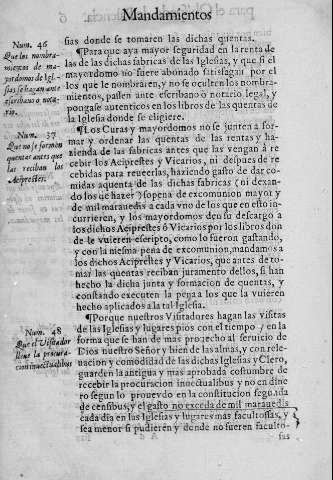 Mandamientos
sias donde se tomaren las dichas quentas.
Num. 46
Que los nombra-
mientos de ma-
yordomos de Igl-
sias se hagan ante
escribano o nota-
rio.
¶Para que aya mayor seguridad en la renta de
las de las dichas fabricas de las Iglesias, y que si el
mayordomo no fuere abonado satisfagan por el
los que le nombraren, y no se oculten los nombra-
mientos, passen ante escribano o notario legal, y
pongase autenticos en los libros de las quentas de
la Iglesia donde se eligiere.
Num. 37
Que no se formen
quentas antes que
las reciban los
Aciprestes.
¶Los Curas y mayordomos no se junten à for-
mar y ordenar las quentas de las rentas y ha-
zienda de las fabricas antes que las vengan à re
cebir los Aciprestes y Vicarios, ni despues de re
cebidas para reuerlas, haziendo gasto de dar co-
midas aquenta de las dichas fabricas (ni dexan-
do los que hazer) so pena de excomunion mayor y
de mil marauedis a cada vno de los que en esto in-
currieren, y los mayordomos den su descargo a
los dichos Aciprestes ò Vicarios por los libros don
de le vuieren escripto, como lo fueron gastando,
y con la mesma pena de excomunion, mandamos a
los dichos Aciprestes y Vicarios, que antes de to-
mar las quentas reciban juramento dellos, si han
hecho la dicha junta y formacion de quentas, y
constando executen la pena a los que la vuieren
hecho aplicados a la tal Iglesia.
Num. 48
Que el Visitador
lleue la procura-
cion inuectualibus
¶Porque nuestros Visitadores hagan las visitas
de las Iglesias y lugares pios con el tiempo y en la
forma que se han de mas prouecho al seruicio de
Dios nuestro Señor y bien de las almas, y con rele-
uacion y comodidad de las dichas Iglesias y Clero,
guarden la antigua y mas aprobada costumbre de
recebir la procuracion inuectualibus y no en dine
ro segun lo proueydo en la constitucion segunda
de censibus, y el gasto no exceda de mil marauedis
cada dia en las Iglesias y lugares mas facultosas, y
sea menor si pudieren y donde no fueren faculto-
sas